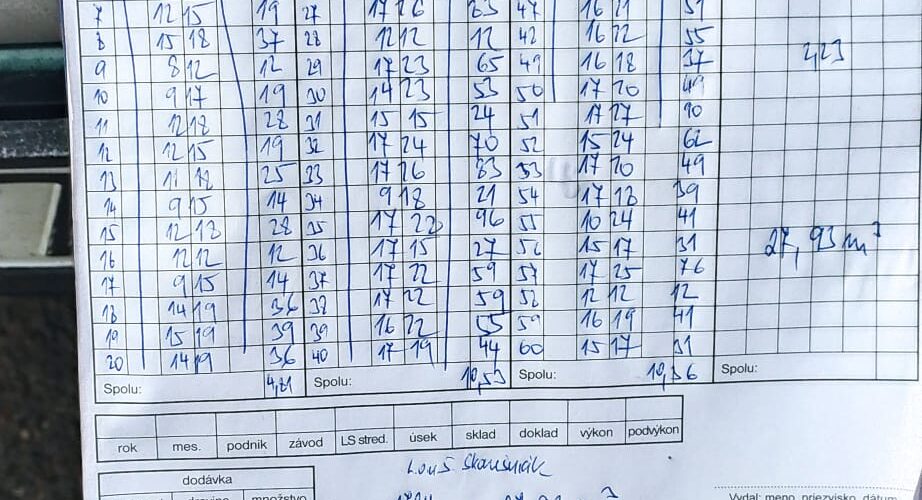 7 12 15 19 27 17 26 83 47 16 21 51
8 15 18 37 28 12 12 12 48 16 22 55
9 8 12 12 29 17 23 65 49 16 18 37 4,23
10 9 17 19 30 14 23 53 50 17 20 49
11 12 18 28 31 15 15 24 51 17 27 90
12 12 15 19 32 17 24 70 52 15 24 62
13 11 18 25 33 17 26 83 53 17 20 49
14 9 15 14 34 9 18 21 54 17 18 39
15 12 18 28 35 17 28 96 55 10 24 41
16 12 12 12 36 17 15 27 56 15 17 31 27,93 m³
17 9 15 14 37 17 22 59 57 17 25 76
18 14 19 36 38 17 22 59 58 12 12 12
19 15 19 39 39 16 22 55 59 16 19 41
20 14 19 36 40 17 19 44 60 15 17 31
Spolu: 4,81 Spolu: 10,53 Spolu: 10,36 Spolu:
rok mes. podnik závod LS stred. úsek sklad doklad výkon podvýkon
dodávka
množstvo
Vydal: meno, priezvisko, dátum